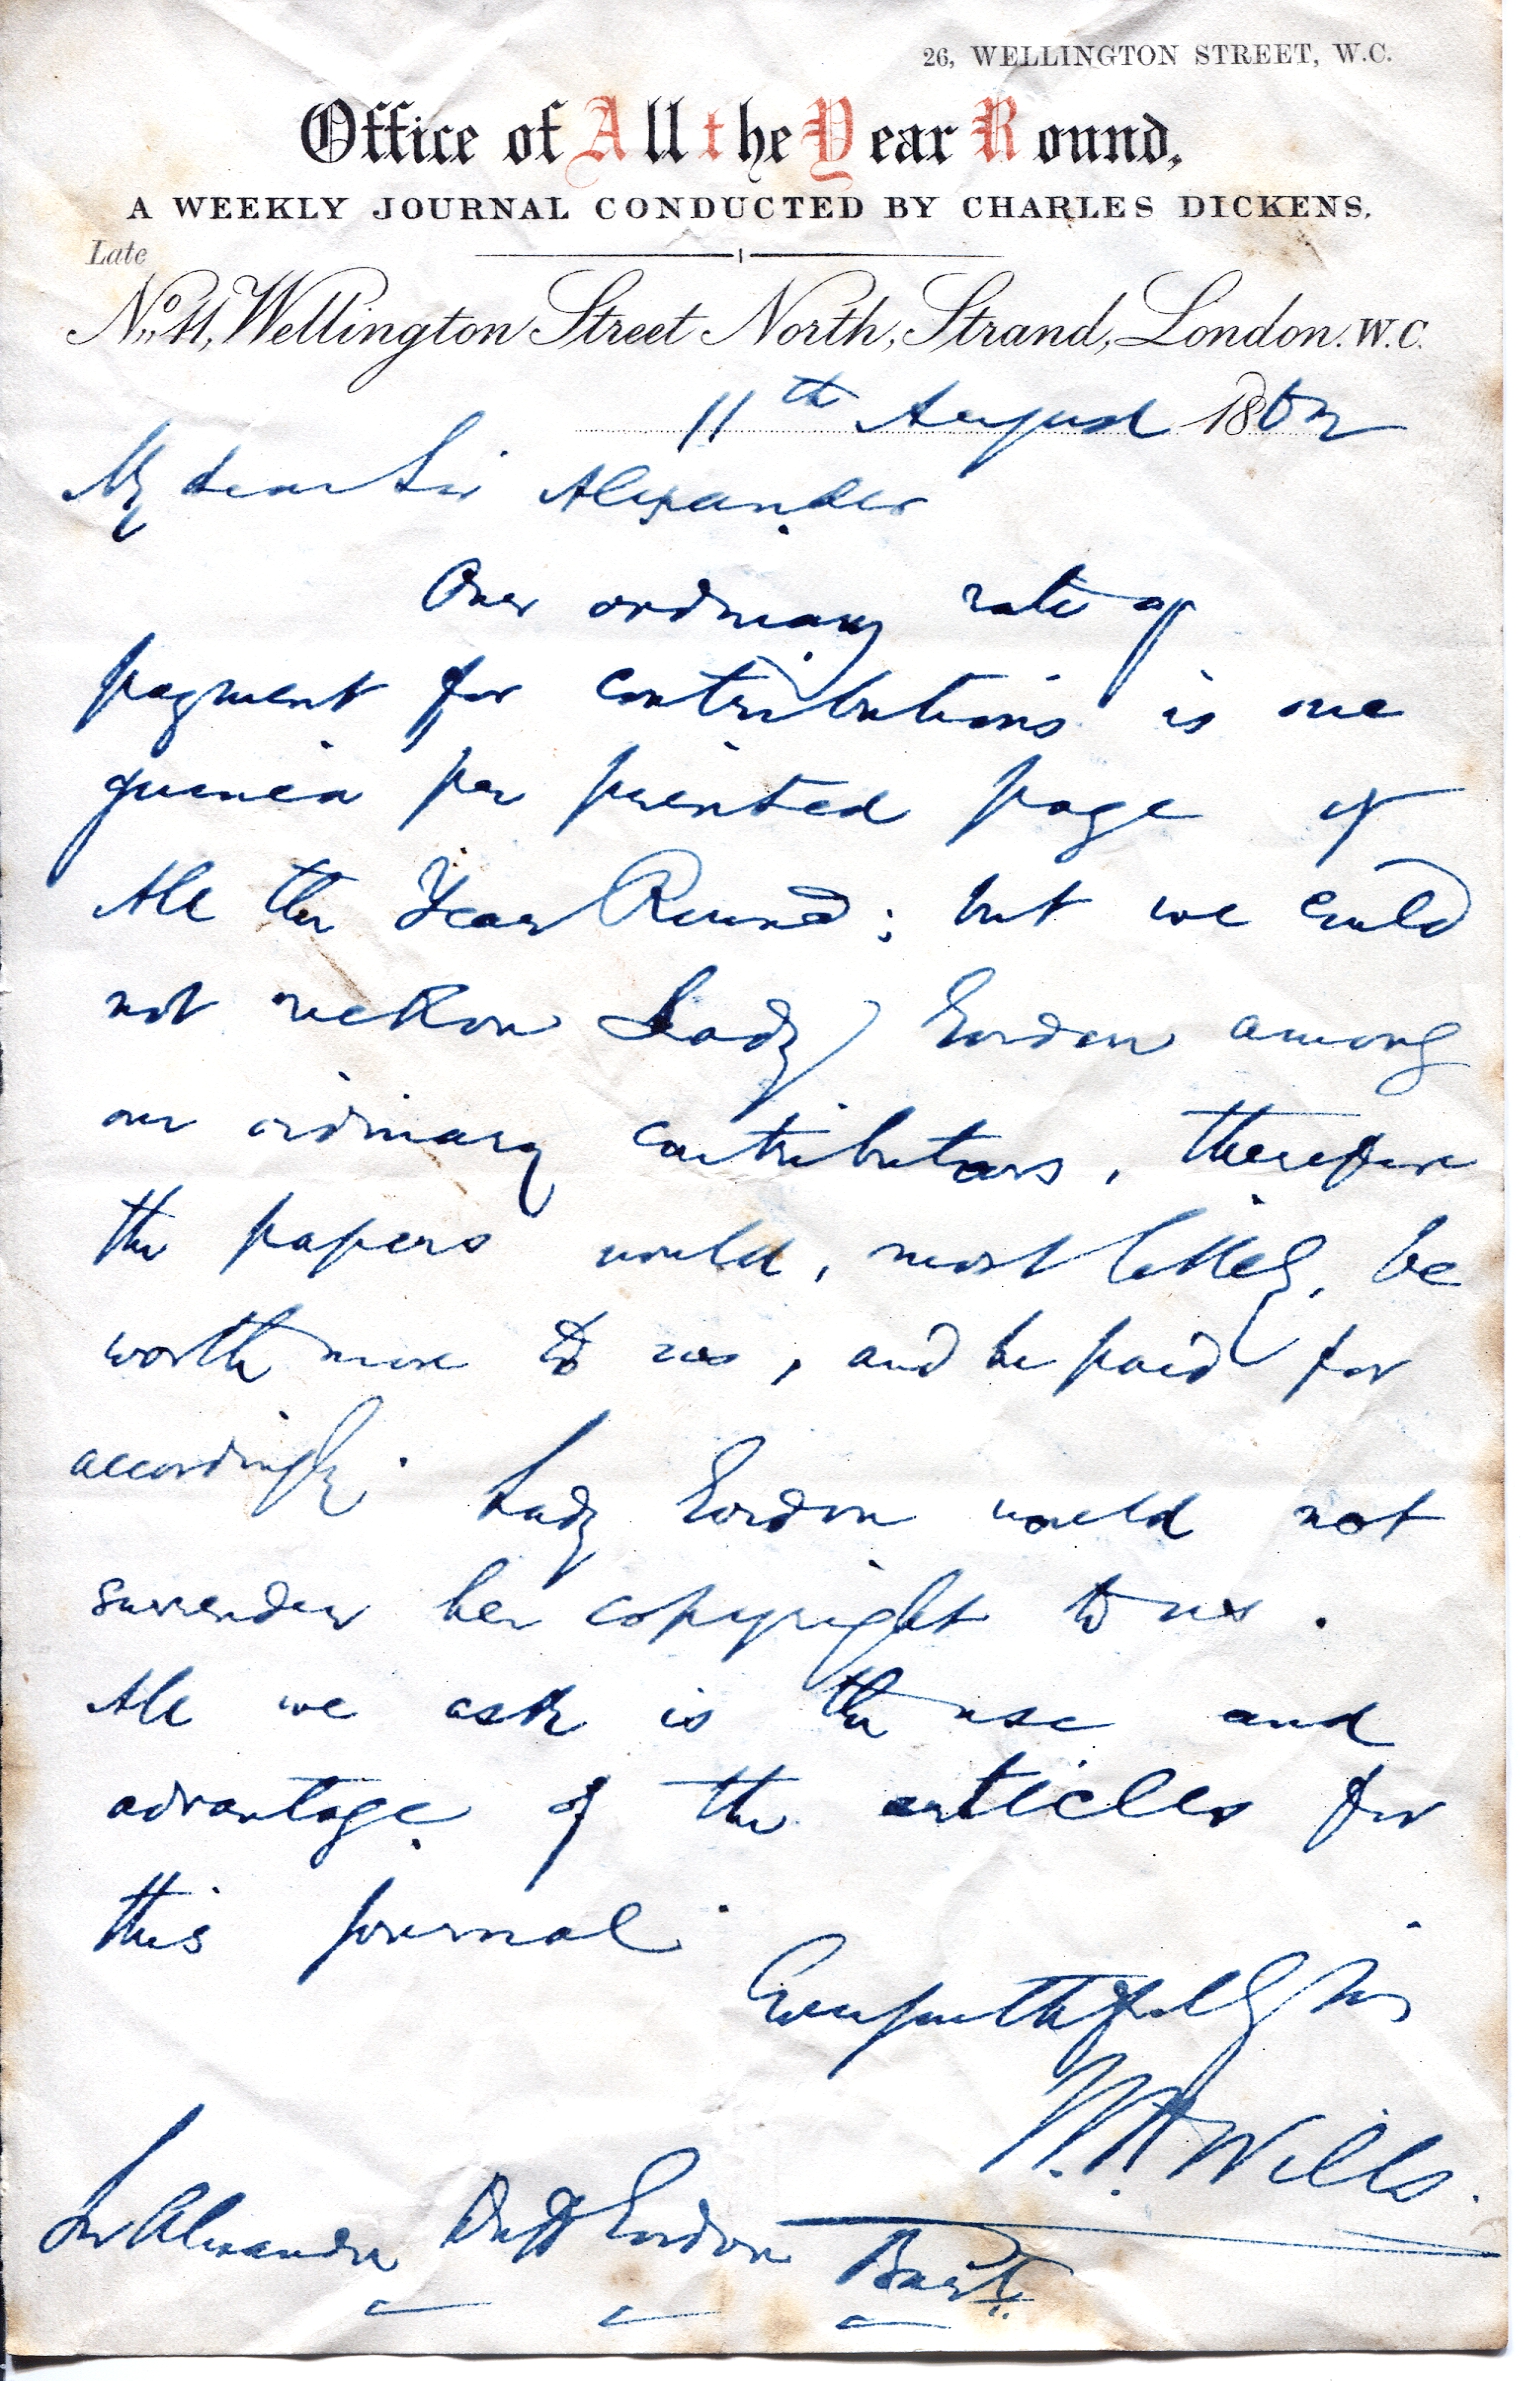 26, WELLINGTON STREET, W.C.
Office of All the Year Round,
A WEEKLY JOURNAL CONDUCTED BY CHARLES DICKENS.
Late
No. 11, Wellington Street North, Strand, London. W.C.
11th August 1862
My dear Sir Alexander
Our ordinary rate of
payment for contributions is one
guinea per printed page of
All the Year Round; but we could
not reckon Lady Gordon among
our ordinary contributors, therefore
the papers would, most likely, be
worth more to us, and be paid for
accordingly. Lady Gordon would not
surrender her copyright to us.
All we ask is the use and
advantage of the articles for
this journal.
Ever faithfully yrs
W.H. Wills.
Sir Alexander Duff Gordon Bart.